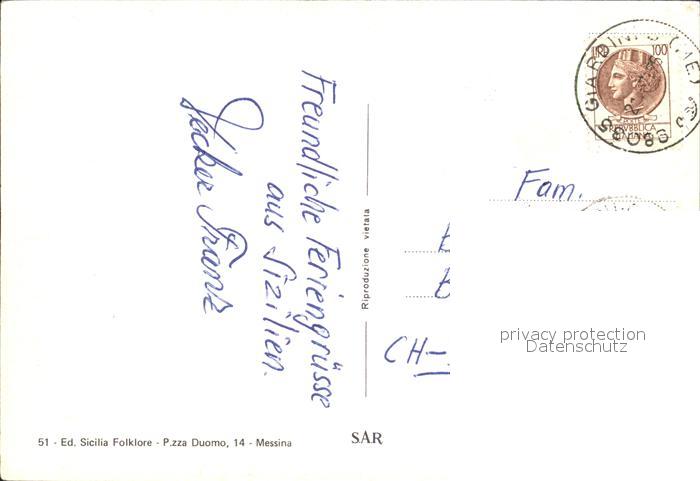 Freundliche Feriengrüsse
aus Sizilien.
Riproduzione vietata
LIRE 100
GIARDINI
98035
REPVBBLICA
ITALIANA
Fam.
CH-
privacy protection
Datenschutz
51 - Ed. Sicilia Folklore - P.zza Duomo, 14 - Messina
SAR